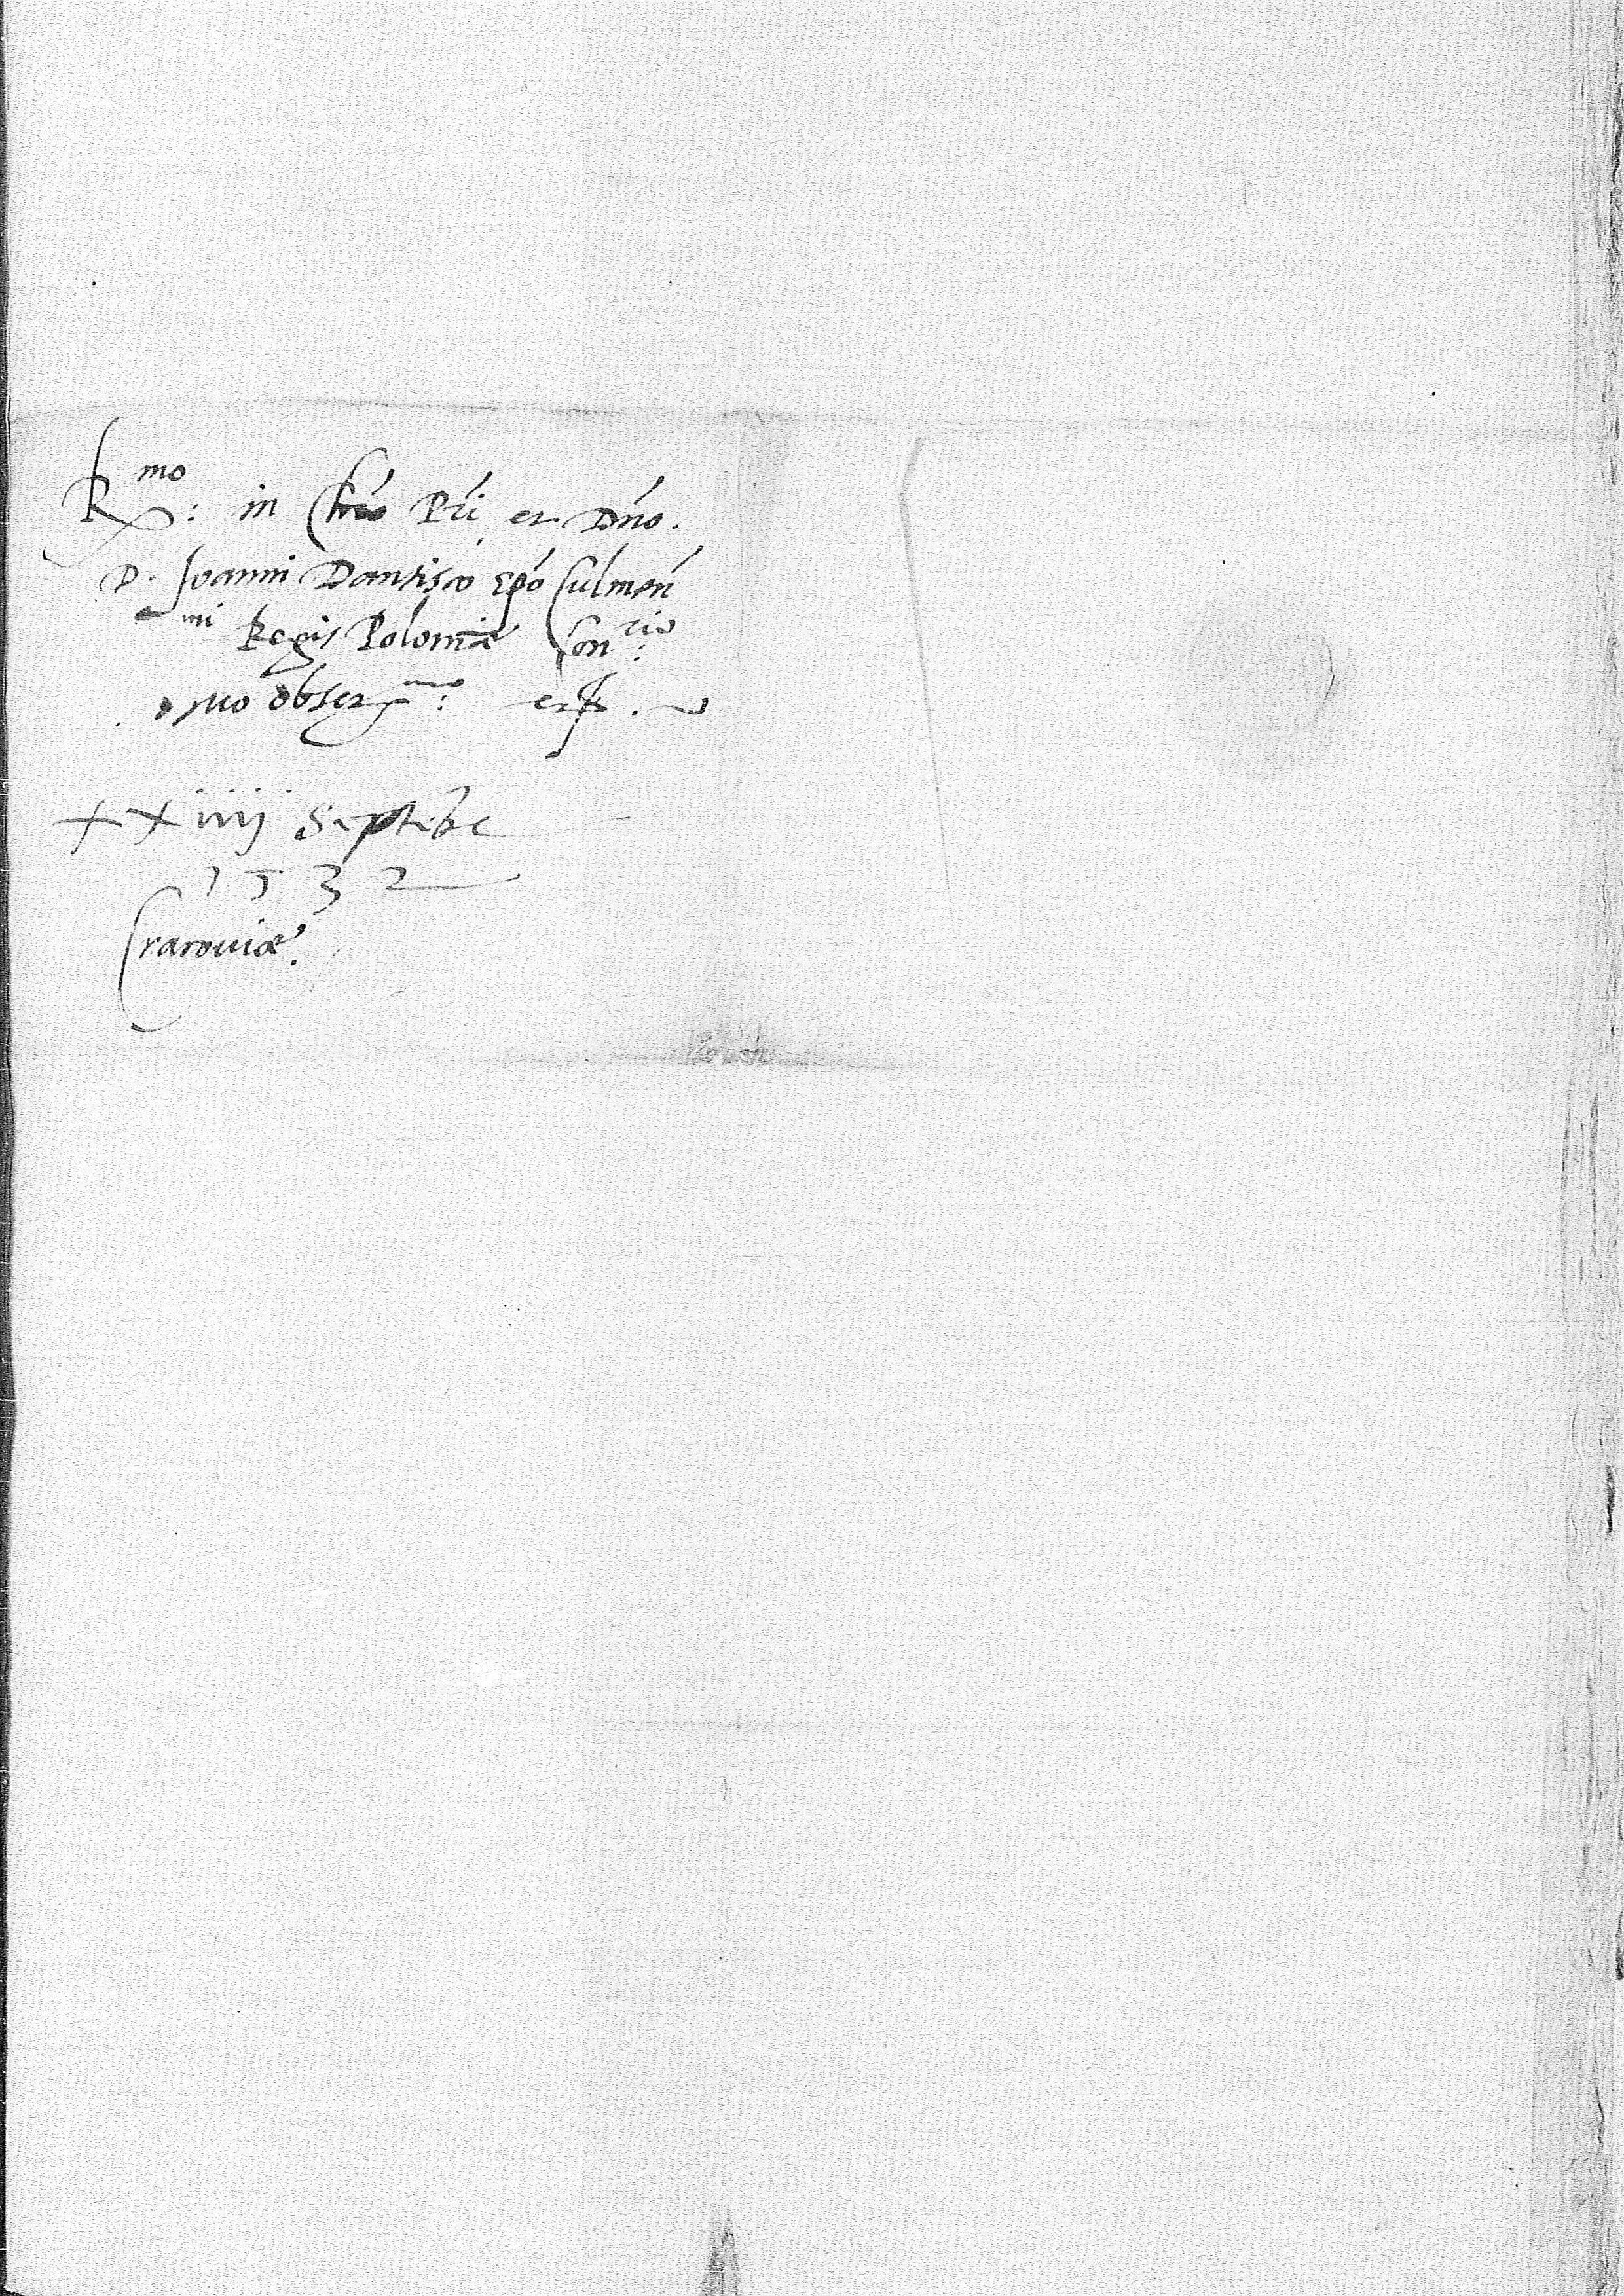 R^mo: in Chro Pri et Dno.
D. Joanni Dantisco Epo Culmen
mi Regis Poloniæ Con^rio:
suo obser^mo: etc.
xxiiij Septēbr
1532
Cracouiæ.